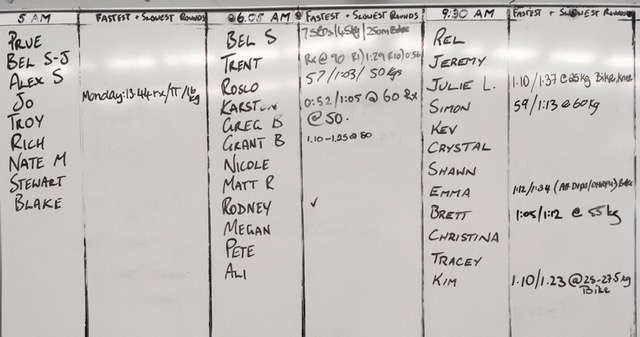 5 AM
FASTEST + SLOWEST ROUNDS
PRUE
BEL S-J
ALEX S
JO
Monday: 13.44 rx/TT/16 kg
TROY
RICH
NATE M
STEWART
BLAKE
@6.05 AM
FASTEST + SLOWEST ROUNDS
BEL S
TRENT
Rx @ 90 R1) 1:29 R10) 0:56
ROSCO
57/1:03/ 50 kgs
KARSTEN
0:52/1:05 @ 60 Rx
GREG B
@ 50.
GRANT B
1.10-1.25 @ 50
NICOLE
MATT R
RODNEY
✓
MEGAN
PETE
ALI
9:30 AM
FASTEST + SLOWEST ROUNDS
REL
JEREMY
JULIE L.
1.10/1.37 @ 25kg Bike/
SIMON
59/1:13 @ 60kg
KEV
CRYSTAL
SHAWN
EMMA
1:12/1:34 Bike
BRETT
1:05/1:12 @ 55kg
CHRISTINA
TRACEY
KIM
1.10/1.23 @ 25-27.5kg
Bike